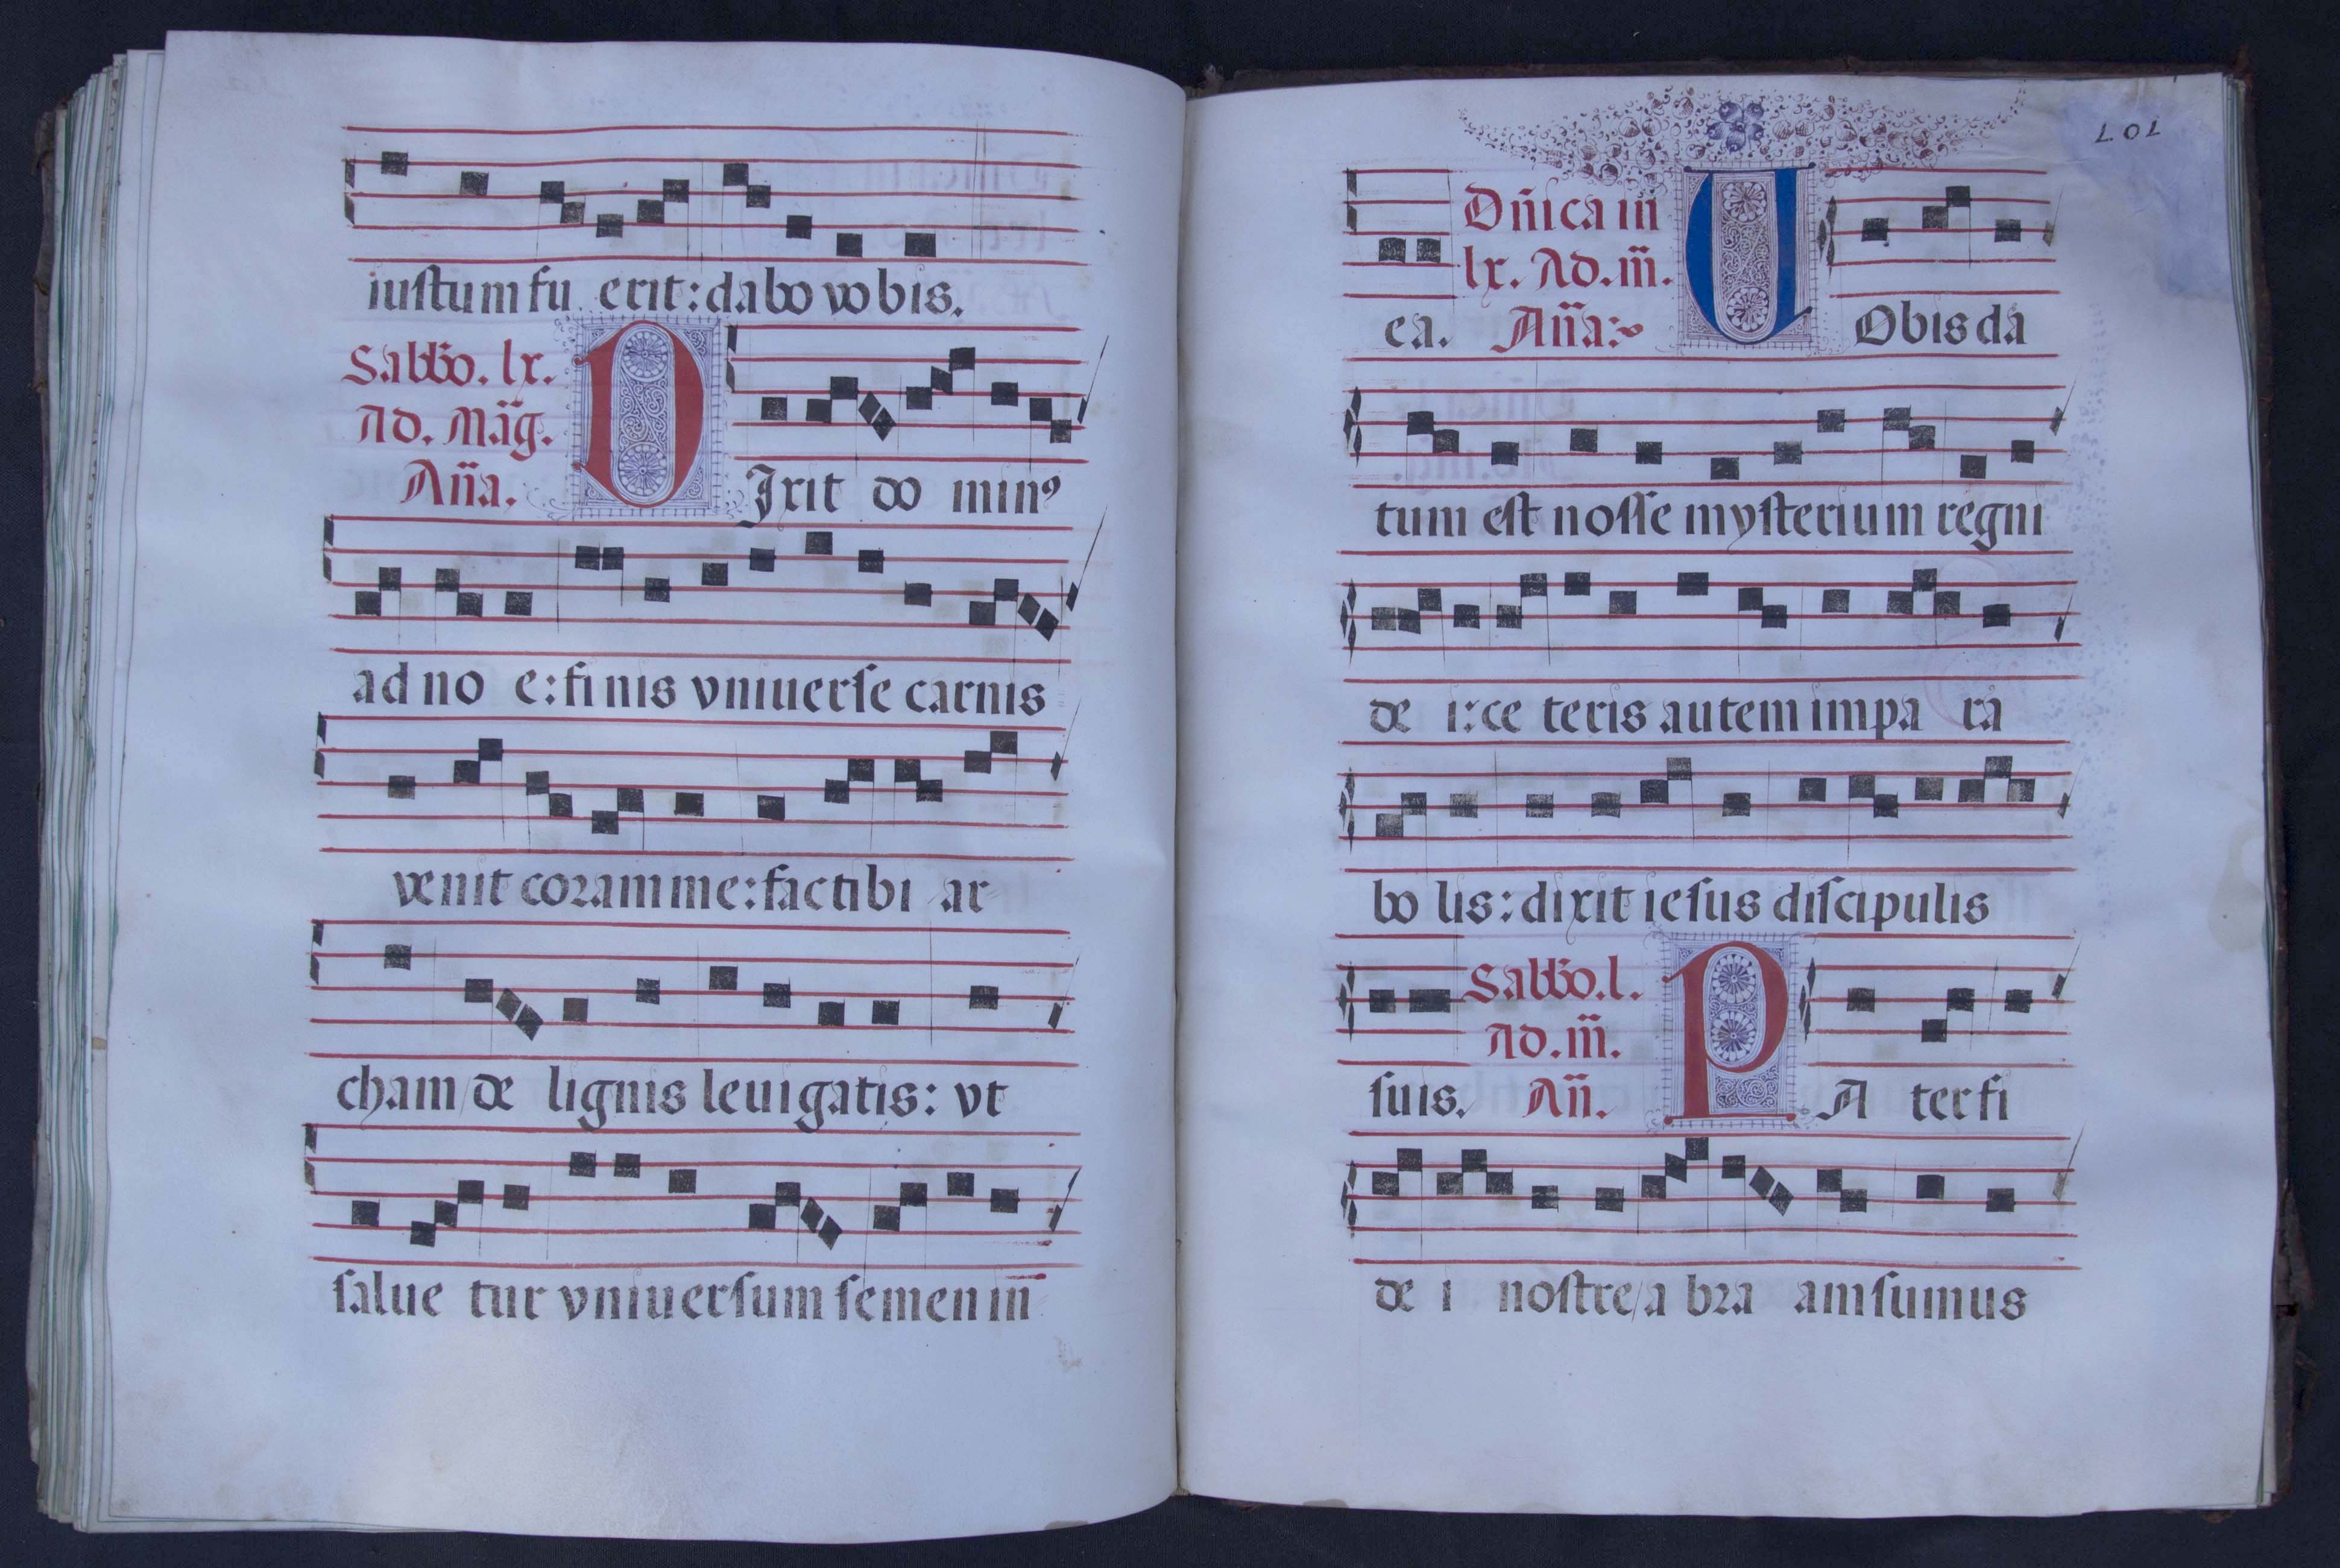 iustum fu erit: dabo vobis.
Sabb̃o. lx.
Ad. Mag̃.
Añа.
DIxit do minꝰ
ad no e: finis vniuerse carnis
venit coram me: fac tibi ar-
cham de lignis leuigatis: vt
salue tur vniuersum semen in
101
Dñica in
lx. Ad. m̃.
ea. Aña:
VObis da
tum est nosse mysterium regni
de i: ce teris autem im pa ra
bo lis: dixit iesus discipulis
Sabb̃o. l.
Ad. m̃.
suis. Añ.
PA ter fi
de i nostre a bra am sumus